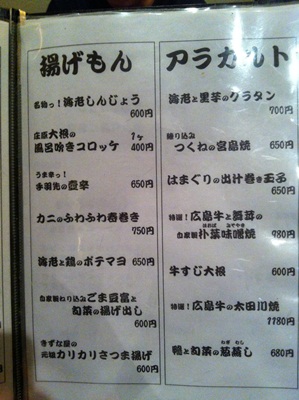 揚げもん
名物っ!海老しんじょう
600円
庄原大根の 1ヶ
風呂吹きコロッケ 400円
うま辛っ!
手羽先の 650円
カニのふわふわ春巻き
750円
海老と鶏のポテマヨ 650円
自家製ねり込みごま豆富と
旬菜の揚げ出し
600円
きずな屋の
元祖カリカリさつま揚げ
600円
アラカルト
海老と里芋のグラタン
700円
練り込み
つくねの宮島焼 650円
はまぐりの出汁巻き玉子
650円
特選!広島牛と舞茸の
自家製朴葉味噌焼 980円
ほおば みややき
牛すじ大根 600円
特選!広島牛の太田川焼
1180円
鴨と旬菜の葱蒸し 680円
ねぎ むし